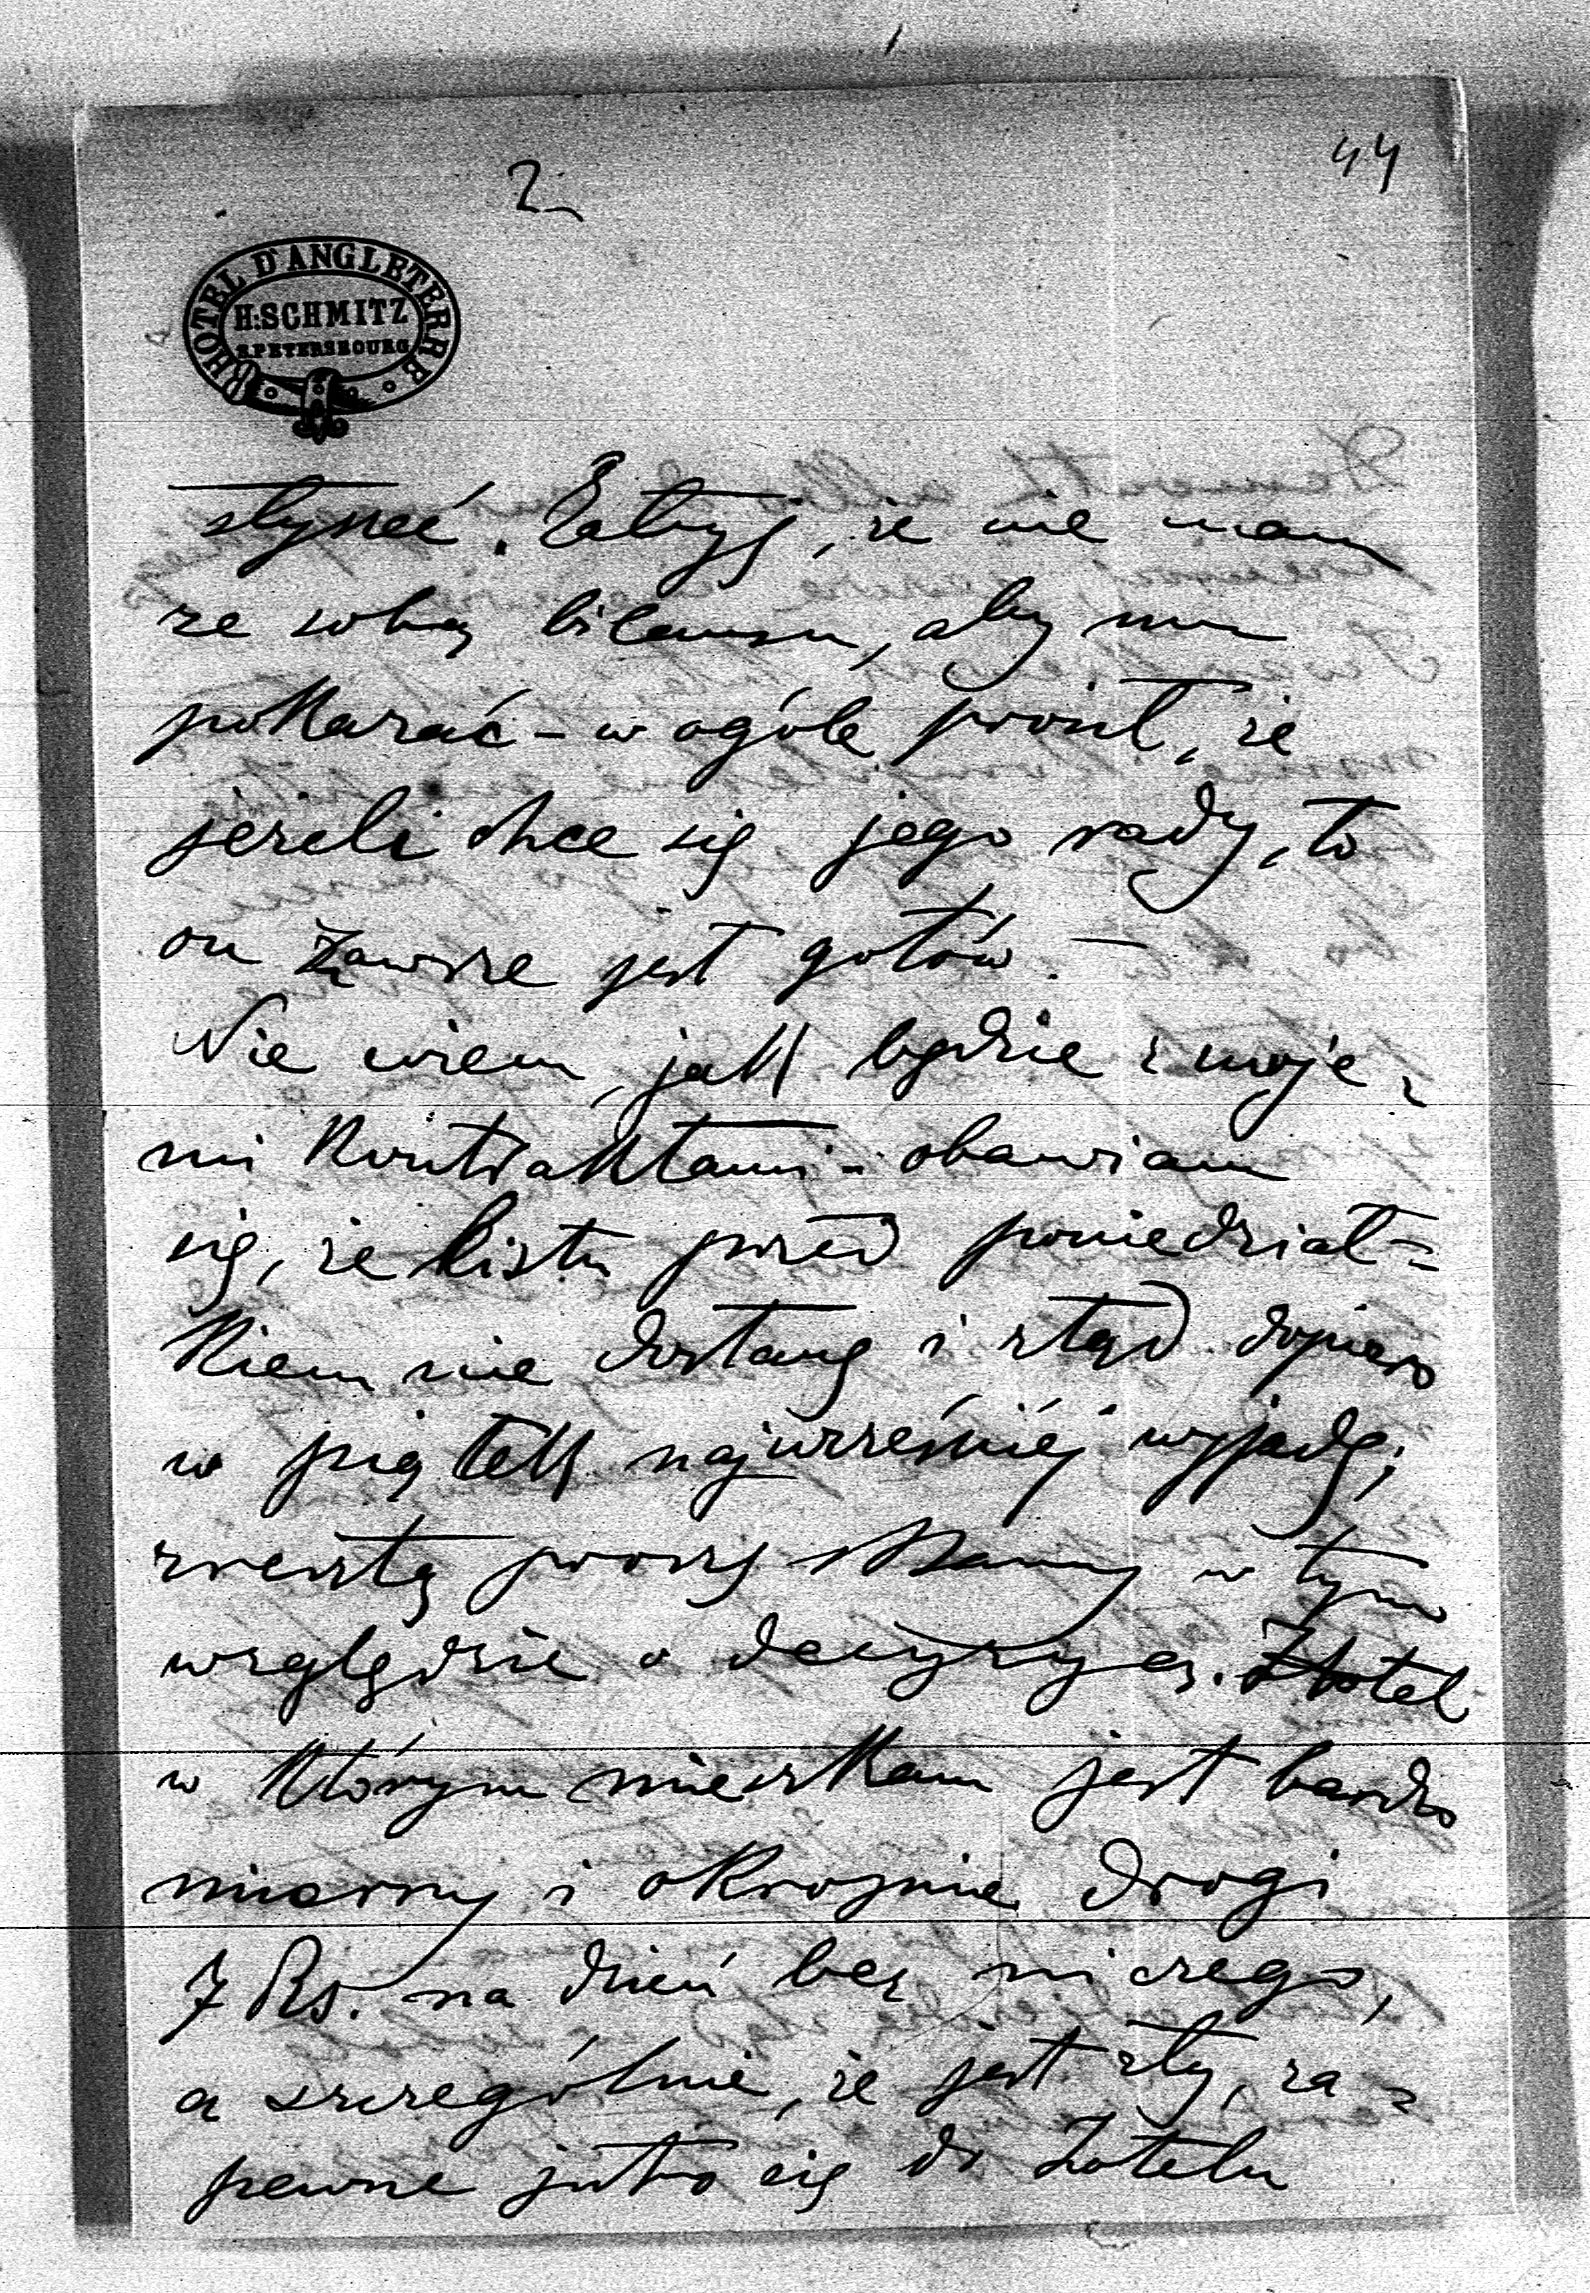 2
44
HOTEL D'ANGLETERRE
H. SCHMITZ
S. PETERSBOURG
słyszeć. Żałuję, że nie mam
ze sobą bilansu, aby mu
pokazać – w ogóle prosił, że
jeżeli chce się jego rady, to
on zawsze jest gotów. –
Nie wiem, jak będzie z moje-
mi kontraktami – obawiam
się, że listu przed poniedział-
kiem nie dostanę i stąd dopiero
w piątek najwcześniéj wyjadę;
zresztą proszę Mamy w tym
względzie o decyzyę. Hotel
w którym mieszkam jest bardzo
mierny i okropnie drogi
7 Rs. na dzień bez niczego,
a szczególnie, że jest zły, za-
pewne jutro się do hotelu